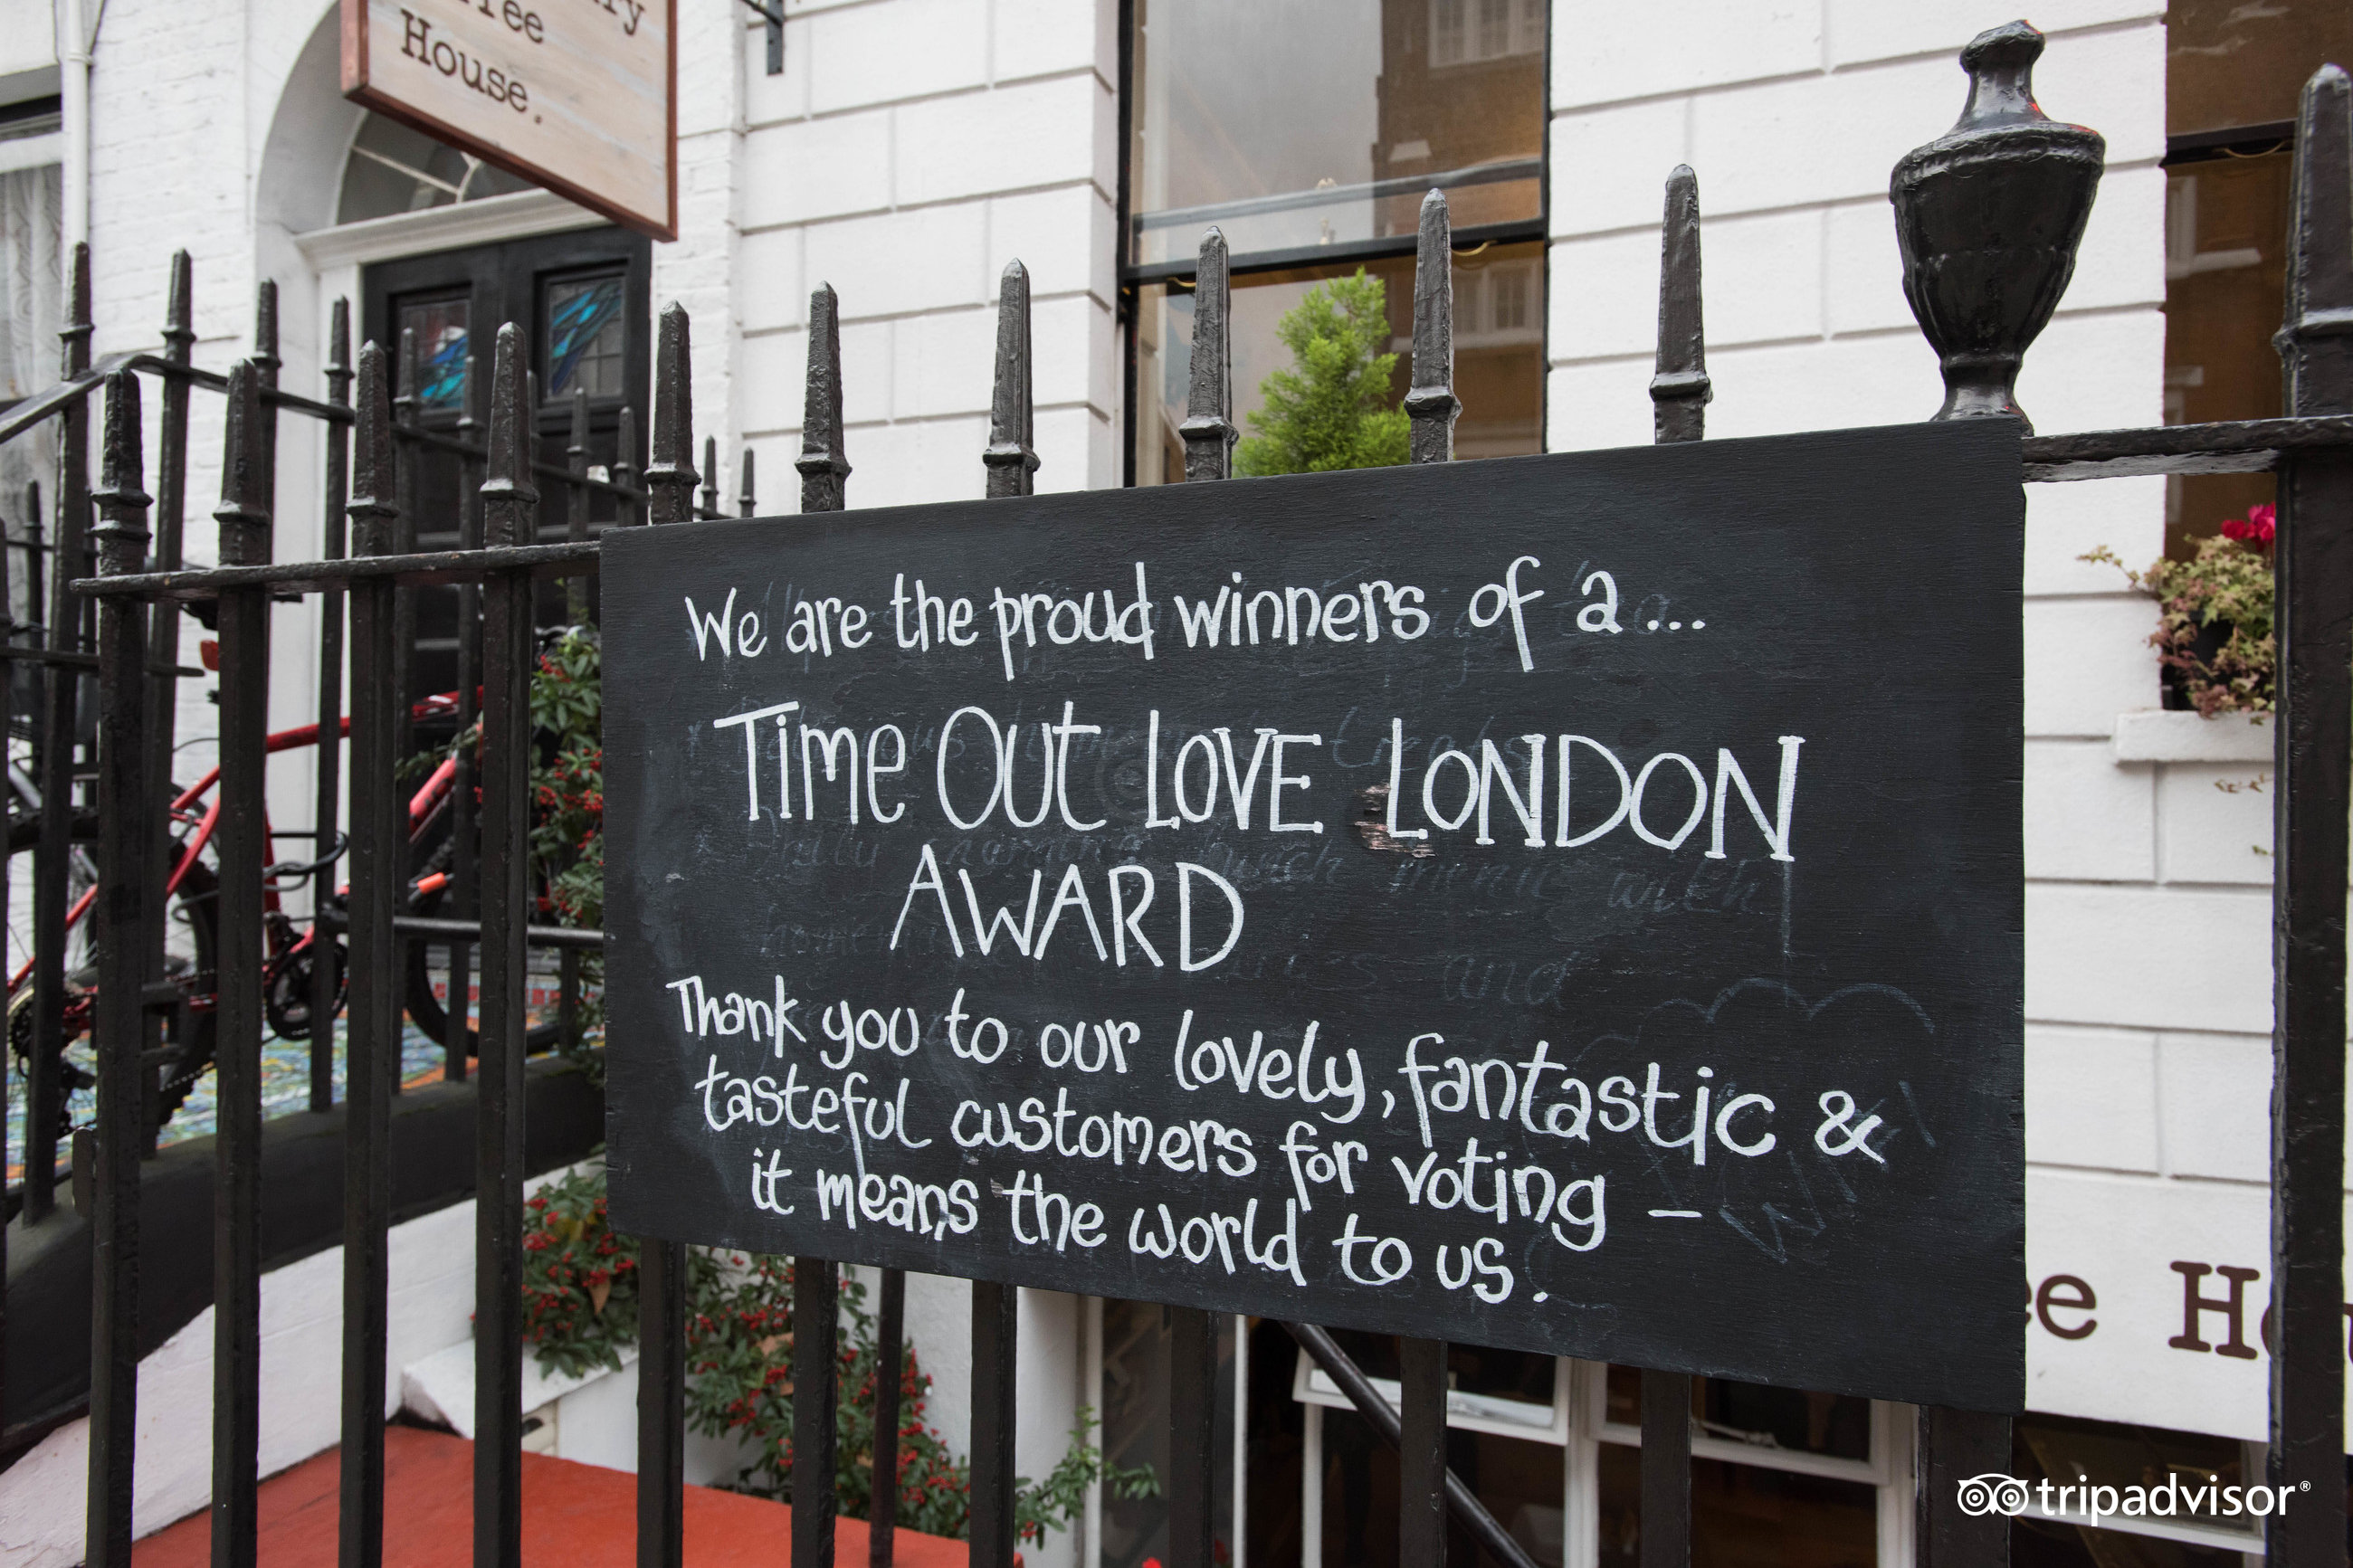 House.
We are the proud winners of a...
Time Out LOVE LONDON
AWARD
Thank you to our lovely, fantastic &
tasteful customers for voting –
it means the world to us.
tripadvisor®